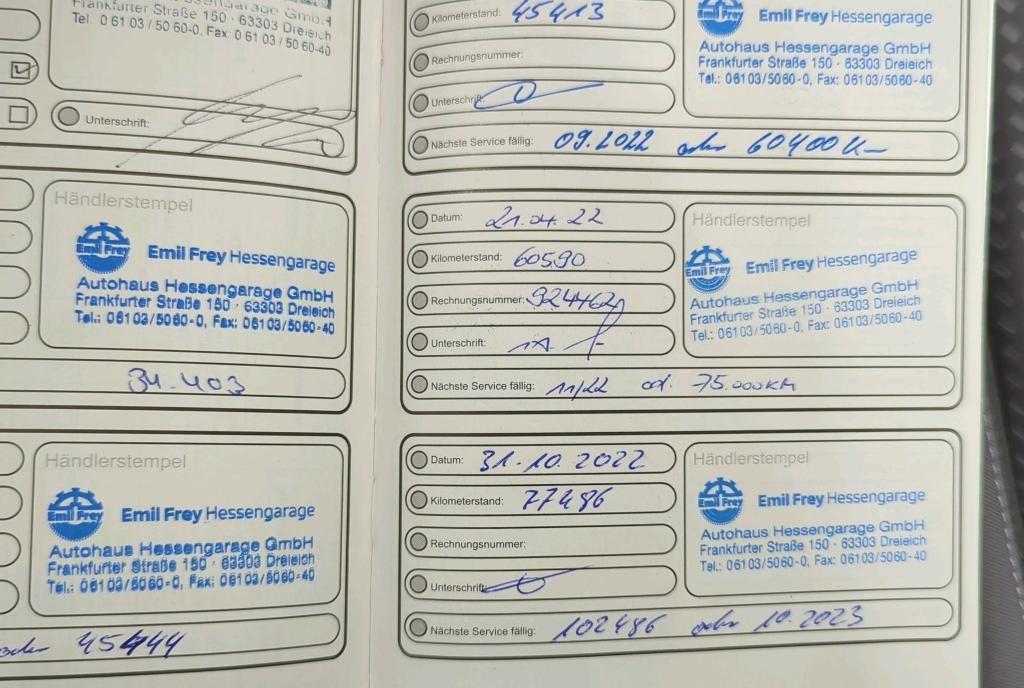 essengarage GmbH
Frankfurter Straße 150 · 63303 Dreieich
Tel. 0 61 03 / 50 60-0, Fax 0 61 03 / 50 60-40
Unterschrift:
Händlerstempel
Emil Frey Emil Frey Hessengarage
Autohaus Hessengarage GmbH
Frankfurter Straße 150 · 63303 Dreieich
Tel.: 06103/5060-0, Fax: 06103/5060-40
31.403
Händlerstempel
Emil Frey Emil Frey Hessengarage
Autohaus Hessengarage GmbH
Frankfurter Straße 150 · 63303 Dreieich
Tel.: 06103/5060-0, Fax: 06103/5060-40
oder 45444
Kilometerstand: 45413
Rechnungsnummer:
Unterschrift:
Emil Frey Emil Frey Hessengarage
Autohaus Hessengarage GmbH
Frankfurter Straße 150 · 63303 Dreieich
Tel.: 06103/5060-0, Fax: 06103/5060-40
Nächste Service fällig: 09.2022 oder 60400 Km
Datum: 21.04.22
Kilometerstand: 60590
Rechnungsnummer: 924462
Unterschrift:
Händlerstempel
Emil Frey Emil Frey Hessengarage
Autohaus Hessengarage GmbH
Frankfurter Straße 150 · 63303 Dreieich
Tel.: 06103/5060-0, Fax: 06103/5060-40
Nächste Service fällig: 11/22 od. 75.000KM
Datum: 31.10.2022
Kilometerstand: 77486
Rechnungsnummer:
Unterschrift:
Händlerstempel
Emil Frey Emil Frey Hessengarage
Autohaus Hessengarage GmbH
Frankfurter Straße 150 · 63303 Dreieich
Tel.: 06103/5060-0, Fax: 06103/5060-40
Nächste Service fällig: 102486 oder 10.2023